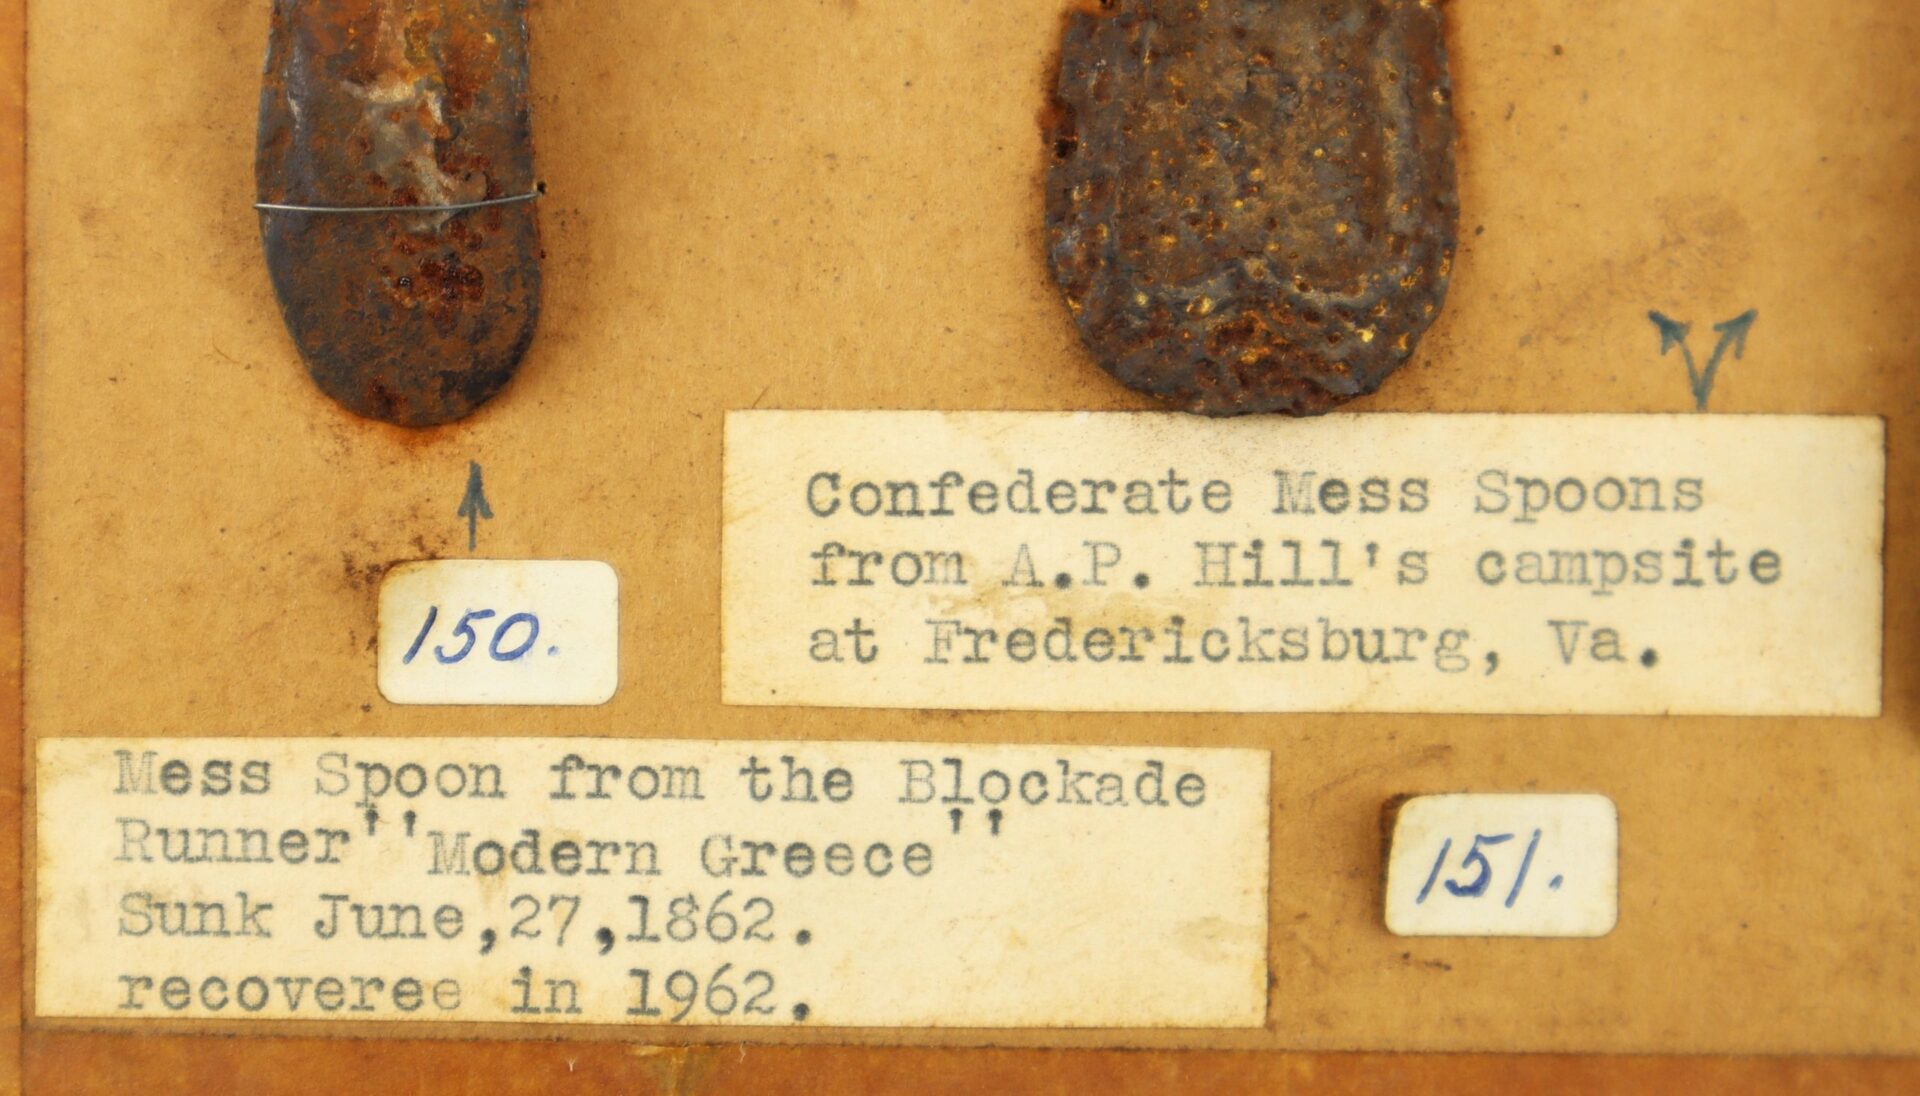 Confederate Mess Spoons
from A.P. Hill's campsite
at Fredericksburg, Va.
150.
Mess Spoon from the Blockade
Runner "Modern Greece"
Sunk June,27,1862.
recoveree in 1962.
151.